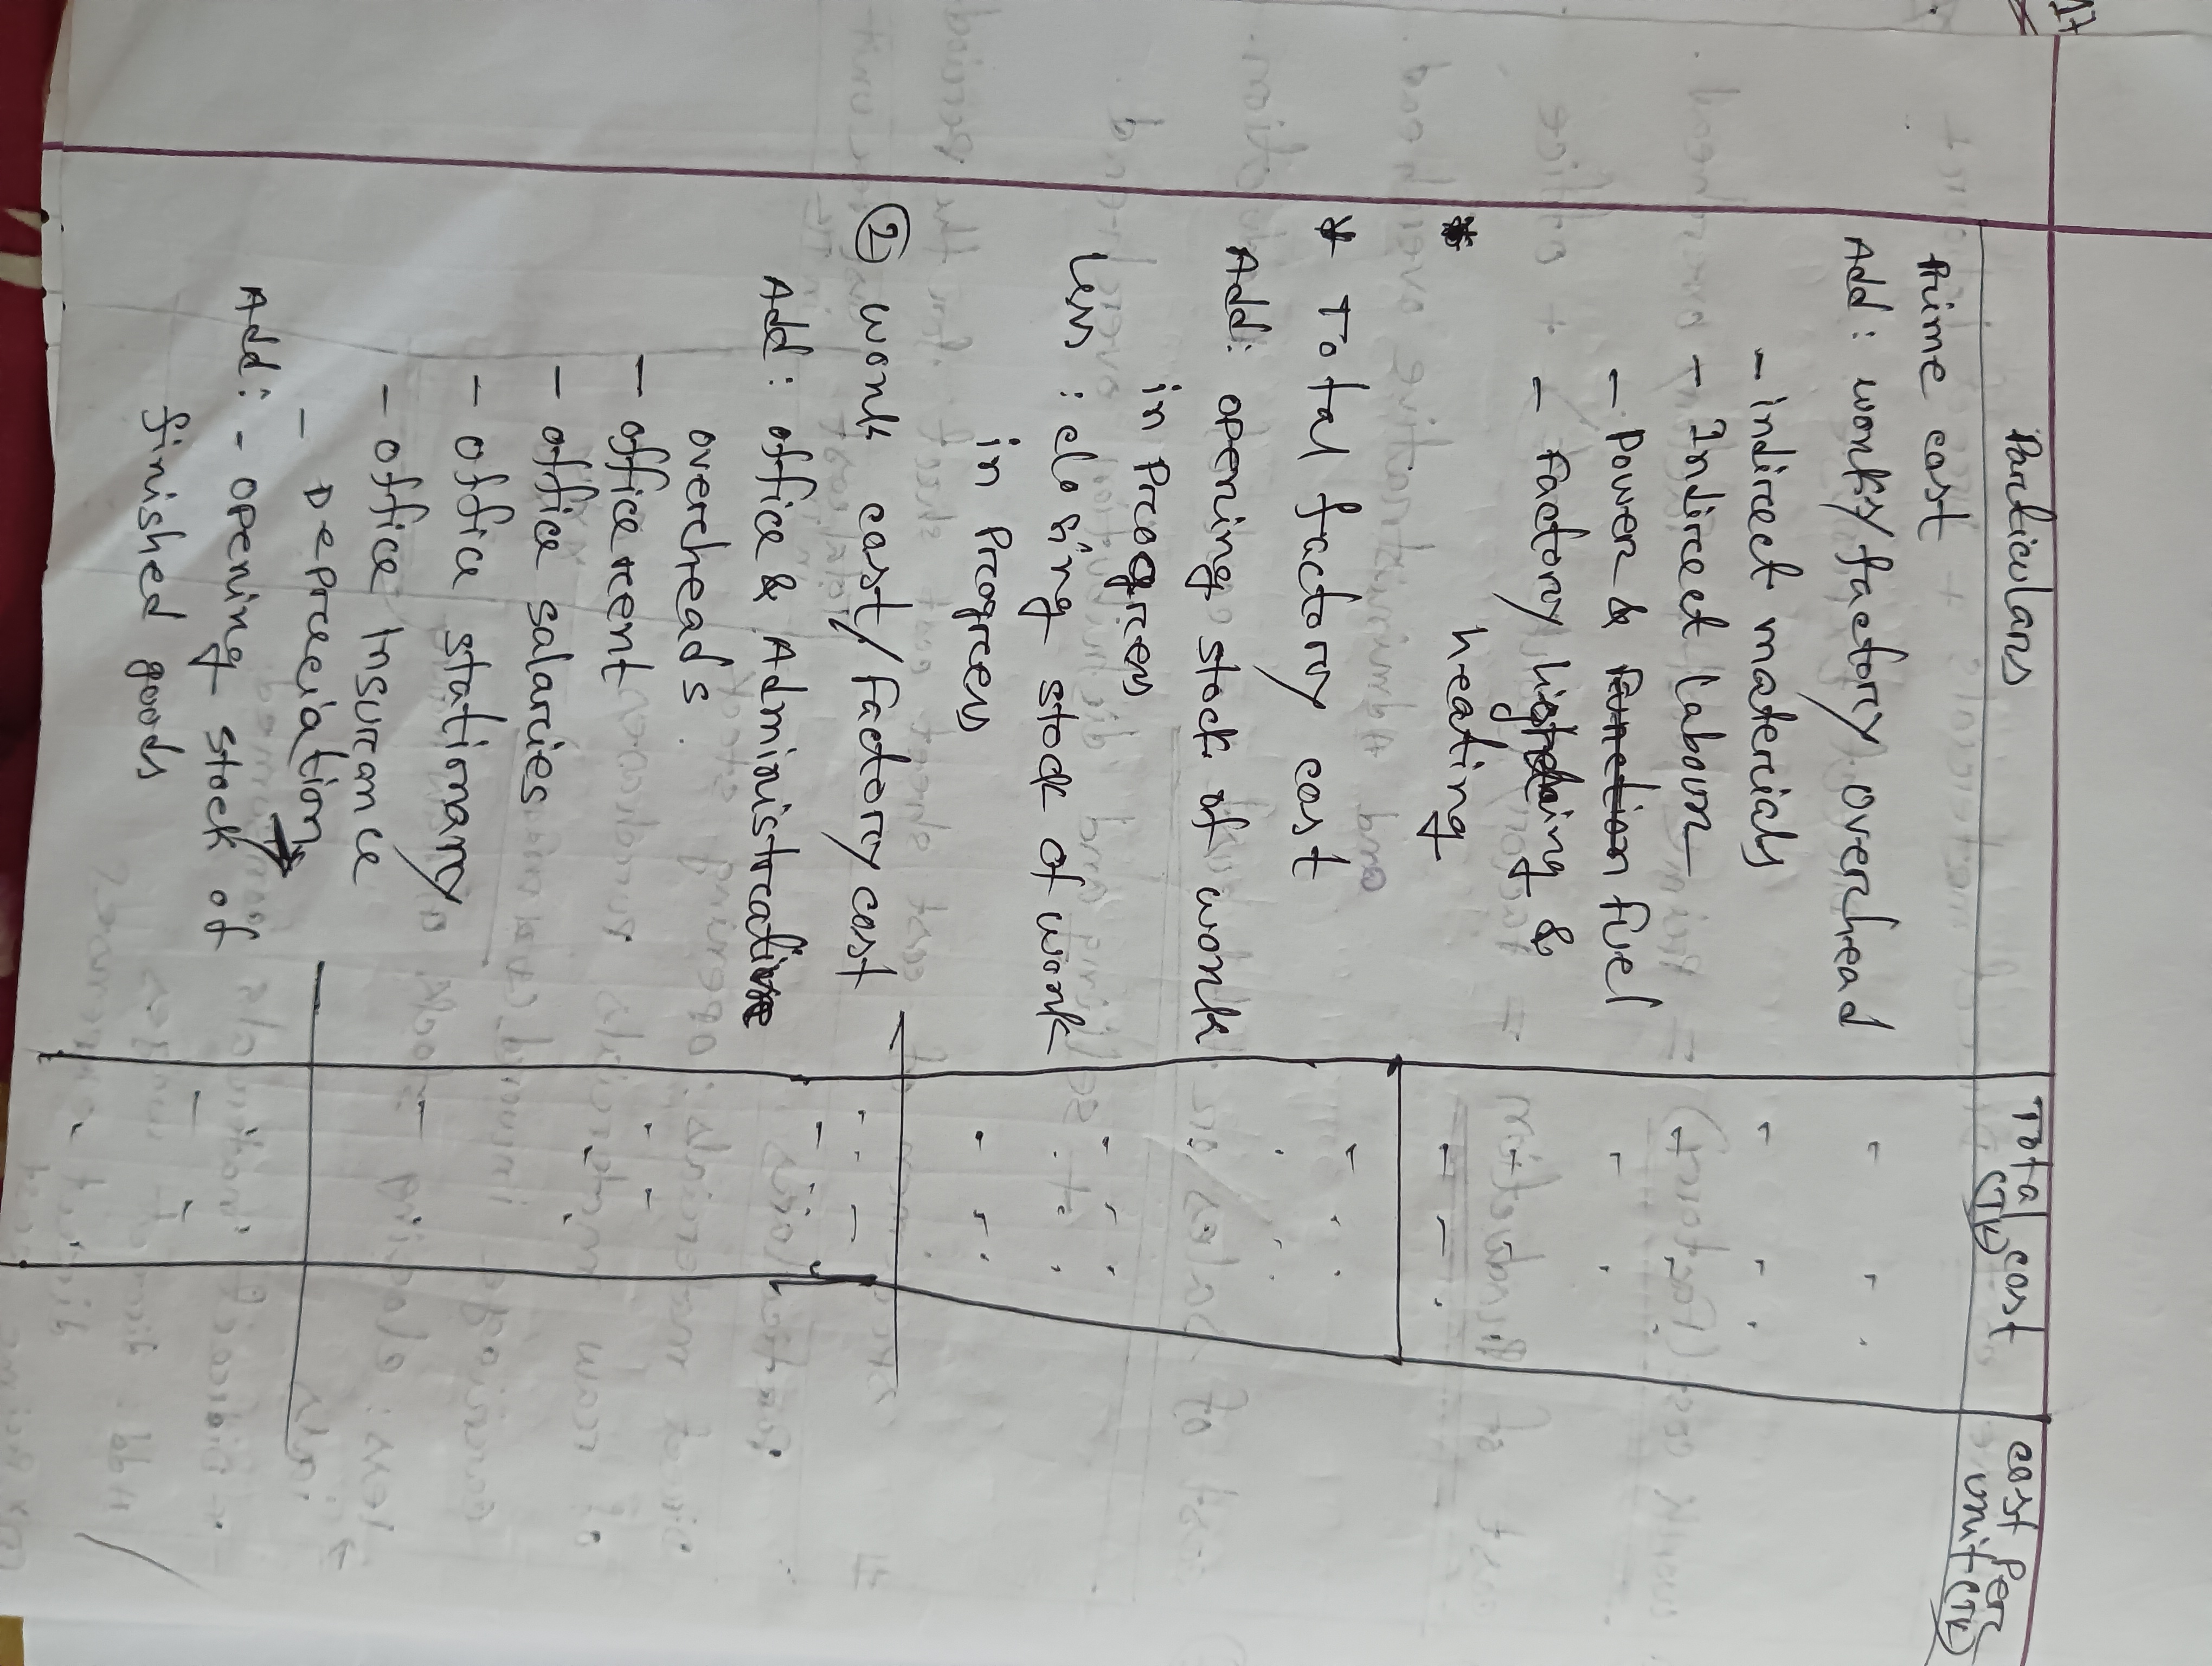 17
Particulars Total cost (TK) cost per unit (TK)
Prime cost
Add: works/factory overhead
- indirect materials
- Indirect Labour
- Power & function fuel
- Factory lighting &
* heating
* Total factory cost
Add: opening stock of work
in Progress
Less: closing stock of work
in Progress
② work cost/factory cost
Add: office & Administrative
overheads
- office rent
- office salaries
- office stationary
- office Insurance
- Depreciation
Add: - opening stock of
finished goods